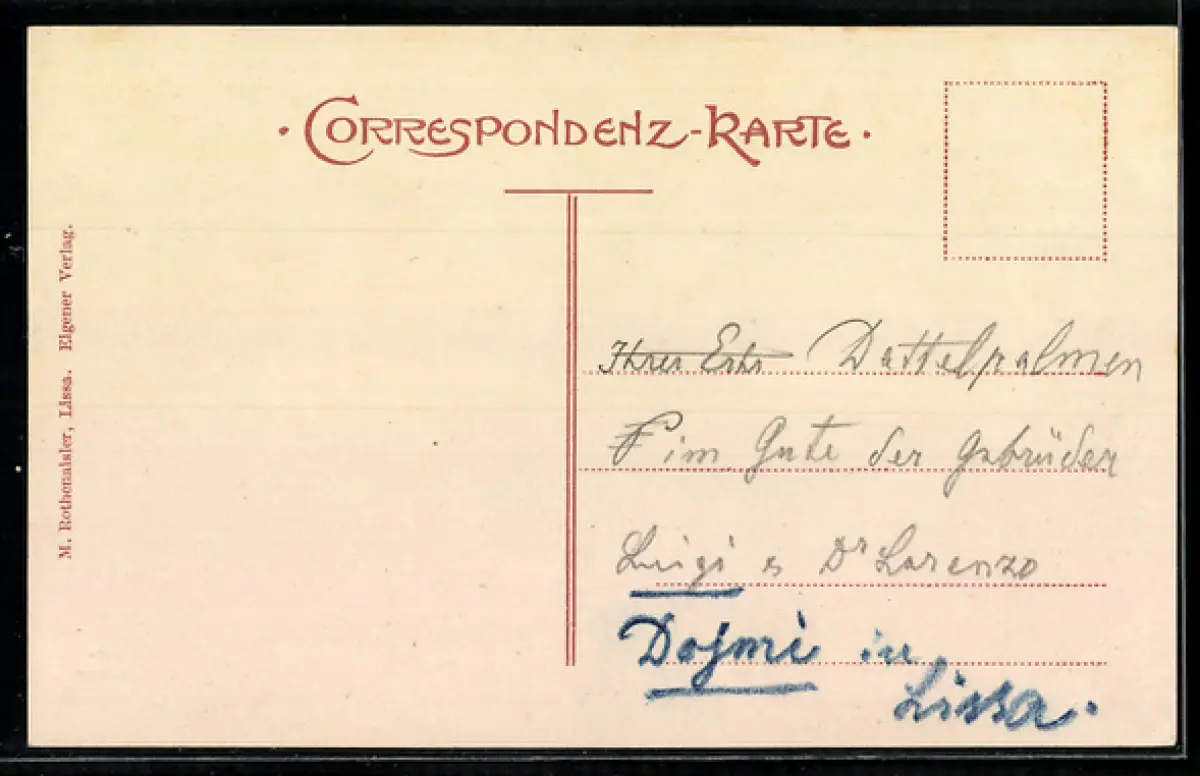 · CORRESPONDENZ-KARTE ·
M. Rothenaisler, Lissa. Eigener Verlag.
Dattelpalmen
im Gute der Gebrüder
Luigi e Dr Lorenzo
Dojmi in
Lissa.